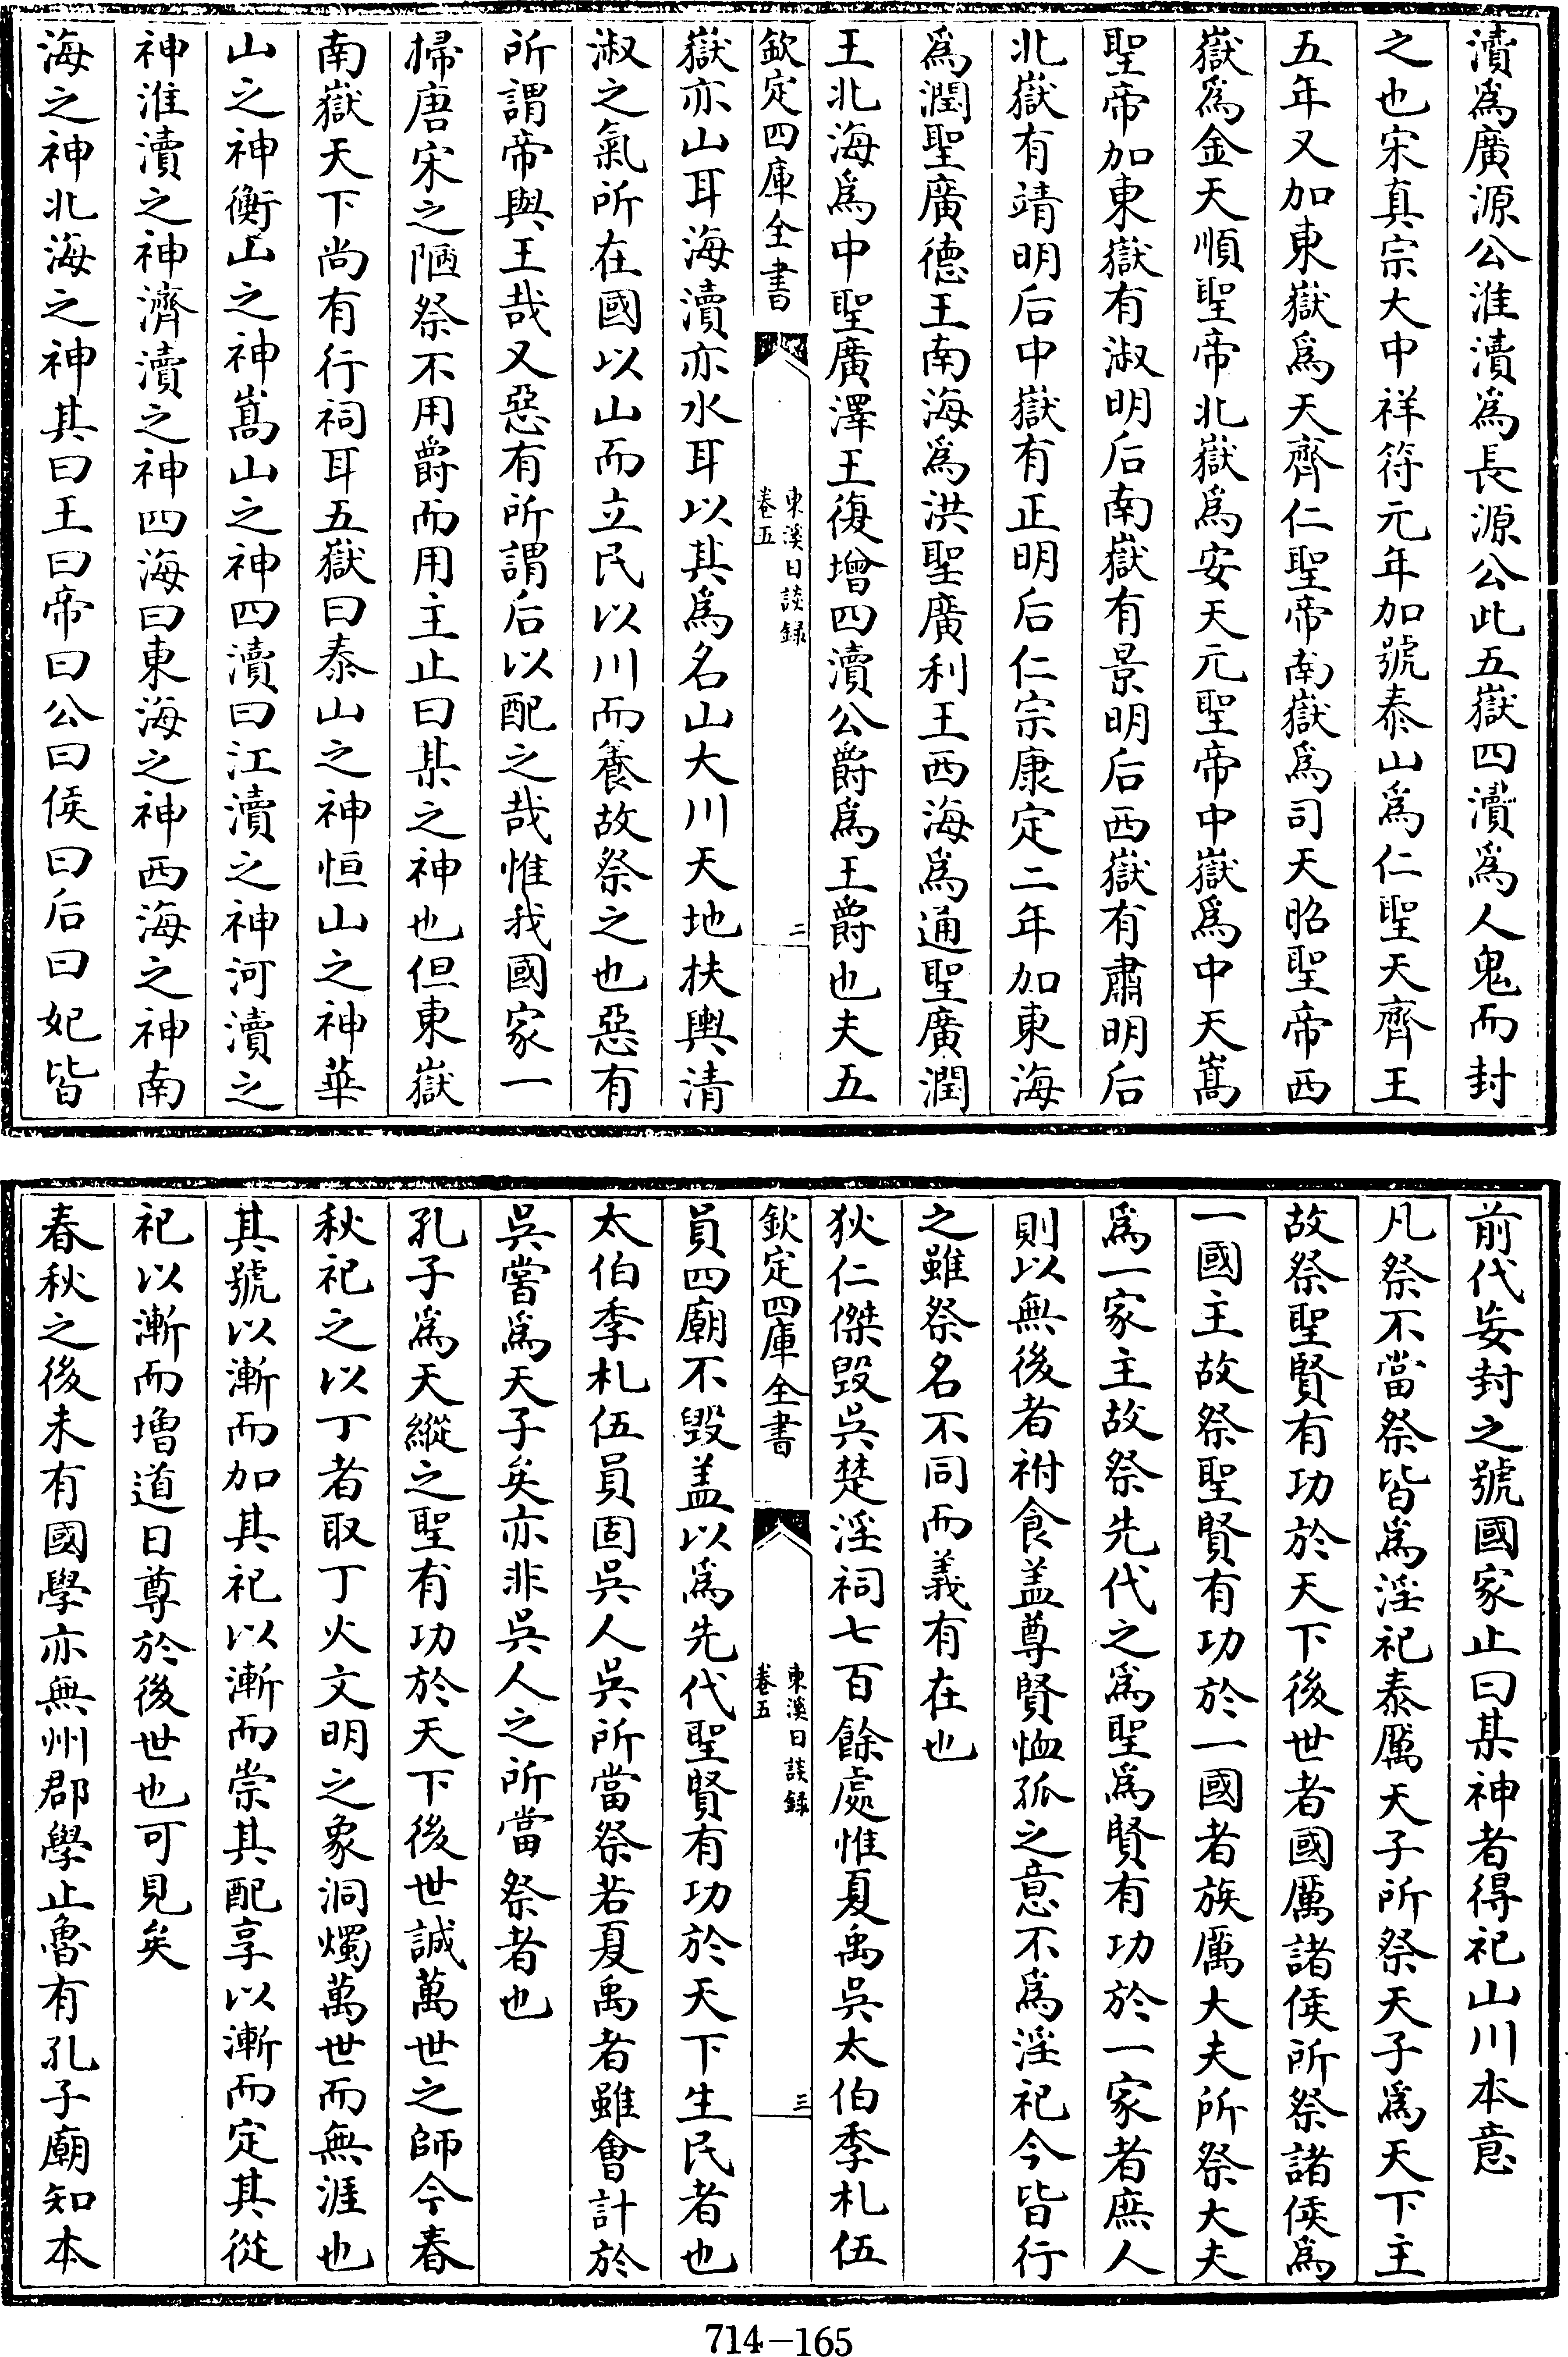 瀆爲廣源公淮瀆爲長源公此五嶽四瀆爲人鬼而封
之也宋真宗大中祥符元年加號泰山爲仁聖天齊王
五年又加東嶽爲天齊仁聖帝南嶽爲司天昭聖帝西
嶽爲金天順聖帝北嶽爲安天元聖帝中嶽爲中天嵩
聖帝加東嶽有淑明后南嶽有景明后西嶽有肅明后
北嶽有靖明后中嶽有正明后仁宗康定二年加東海
爲潤聖廣德王南海爲洪聖廣利王西海爲通聖廣潤
王北海爲中聖廣澤王復增四瀆公爵爲王爵也夫五
欽定四庫全書
東溪日談録
卷五
二
嶽亦山耳海瀆亦水耳以其爲名山大川天地扶輿清
淑之氣所在國以山而立民以川而養故祭之也惡有
所謂帝與王哉又惡有所謂后以配之哉惟我國家一
掃唐宋之陋祭不用爵而用主止曰某之神也但東嶽
南嶽天下尚有行祠耳五嶽曰泰山之神恒山之神華
山之神衡山之神嵩山之神四瀆曰江瀆之神河瀆之
神淮瀆之神濟瀆之神四海曰東海之神西海之神南
海之神北海之神其曰王曰帝曰公曰侯曰后曰妃皆
前代妄封之號國家止曰某神者得祀山川本意
凡祭不當祭皆爲淫祀泰厲天子所祭天子爲天下主
故祭聖賢有功於天下後世者國厲諸侯所祭諸侯爲
一國主故祭聖賢有功於一國者族厲大夫所祭大夫
爲一家主故祭先代之爲聖爲賢有功於一家者庶人
則以無後者祔食盖尊賢恤孤之意不爲淫祀今皆行
之雖祭名不同而義有在也
狄仁傑毀吳楚淫祠七百餘處惟夏禹吳太伯季札伍
欽定四庫全書
東溪日談録
卷五
三
員四廟不毀盖以爲先代聖賢有功於天下生民者也
太伯季札伍員固吳人吳所當祭若夏禹者雖會計於
吳嘗爲天子矣亦非吳人之所當祭者也
孔子爲天縱之聖有功於天下後世誠萬世之師今春
秋祀之以丁者取丁火文明之象洞燭萬世而無涯也
其號以漸而加其祀以漸而崇其配享以漸而定其從
祀以漸而增道日尊於後世也可見矣
春秋之後未有國學亦無州郡學止魯有孔子廟知本
714-165